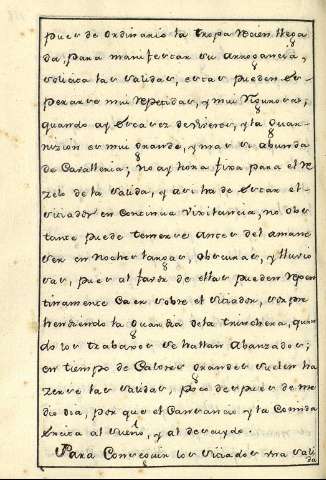 pues de ordinario la tropa recien llega
da, para manifestar su arrogancia,
solicita las salidas, estas pueden es
perarse mui repetidas, y mui vigurosas,
quando ay escases de viveres, y la Guar
nizion es mui grande, y mas si abunda
de Cavalleria; no ay hora fixa para el re
zelo de la salida, y asi ha de estar el
sitiador en continua vixilancia, no obs
tante puede temerse antes del amane
ser en noches largas, obscuras, y lluvio
sas, pues al fardo de ellas pueden repen
tinamente caer sobre el sitiador, sorpre
hendiendo la guardia dela trinchera, quan
do los trabaxos se hallan abanzados;
en tiempo de Calores grandes suelen ha
zerse las salidas, poco despues de me
dio dia, por que el Cansancio y la Comida
excita al sueño, y al descuydo.
Para Conseguir los sitiados una sali
da